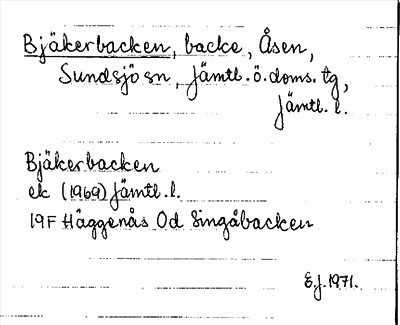 Bjäkerbacken, backe, Åsen,
Sundsjö sn, Jämtl. ö. doms. tg,
Jämtl. l.
Bjäkerbacken
ek (1969) Jämtl. l.
19F Häggenås Od Singåbacken
E.J. 1971.